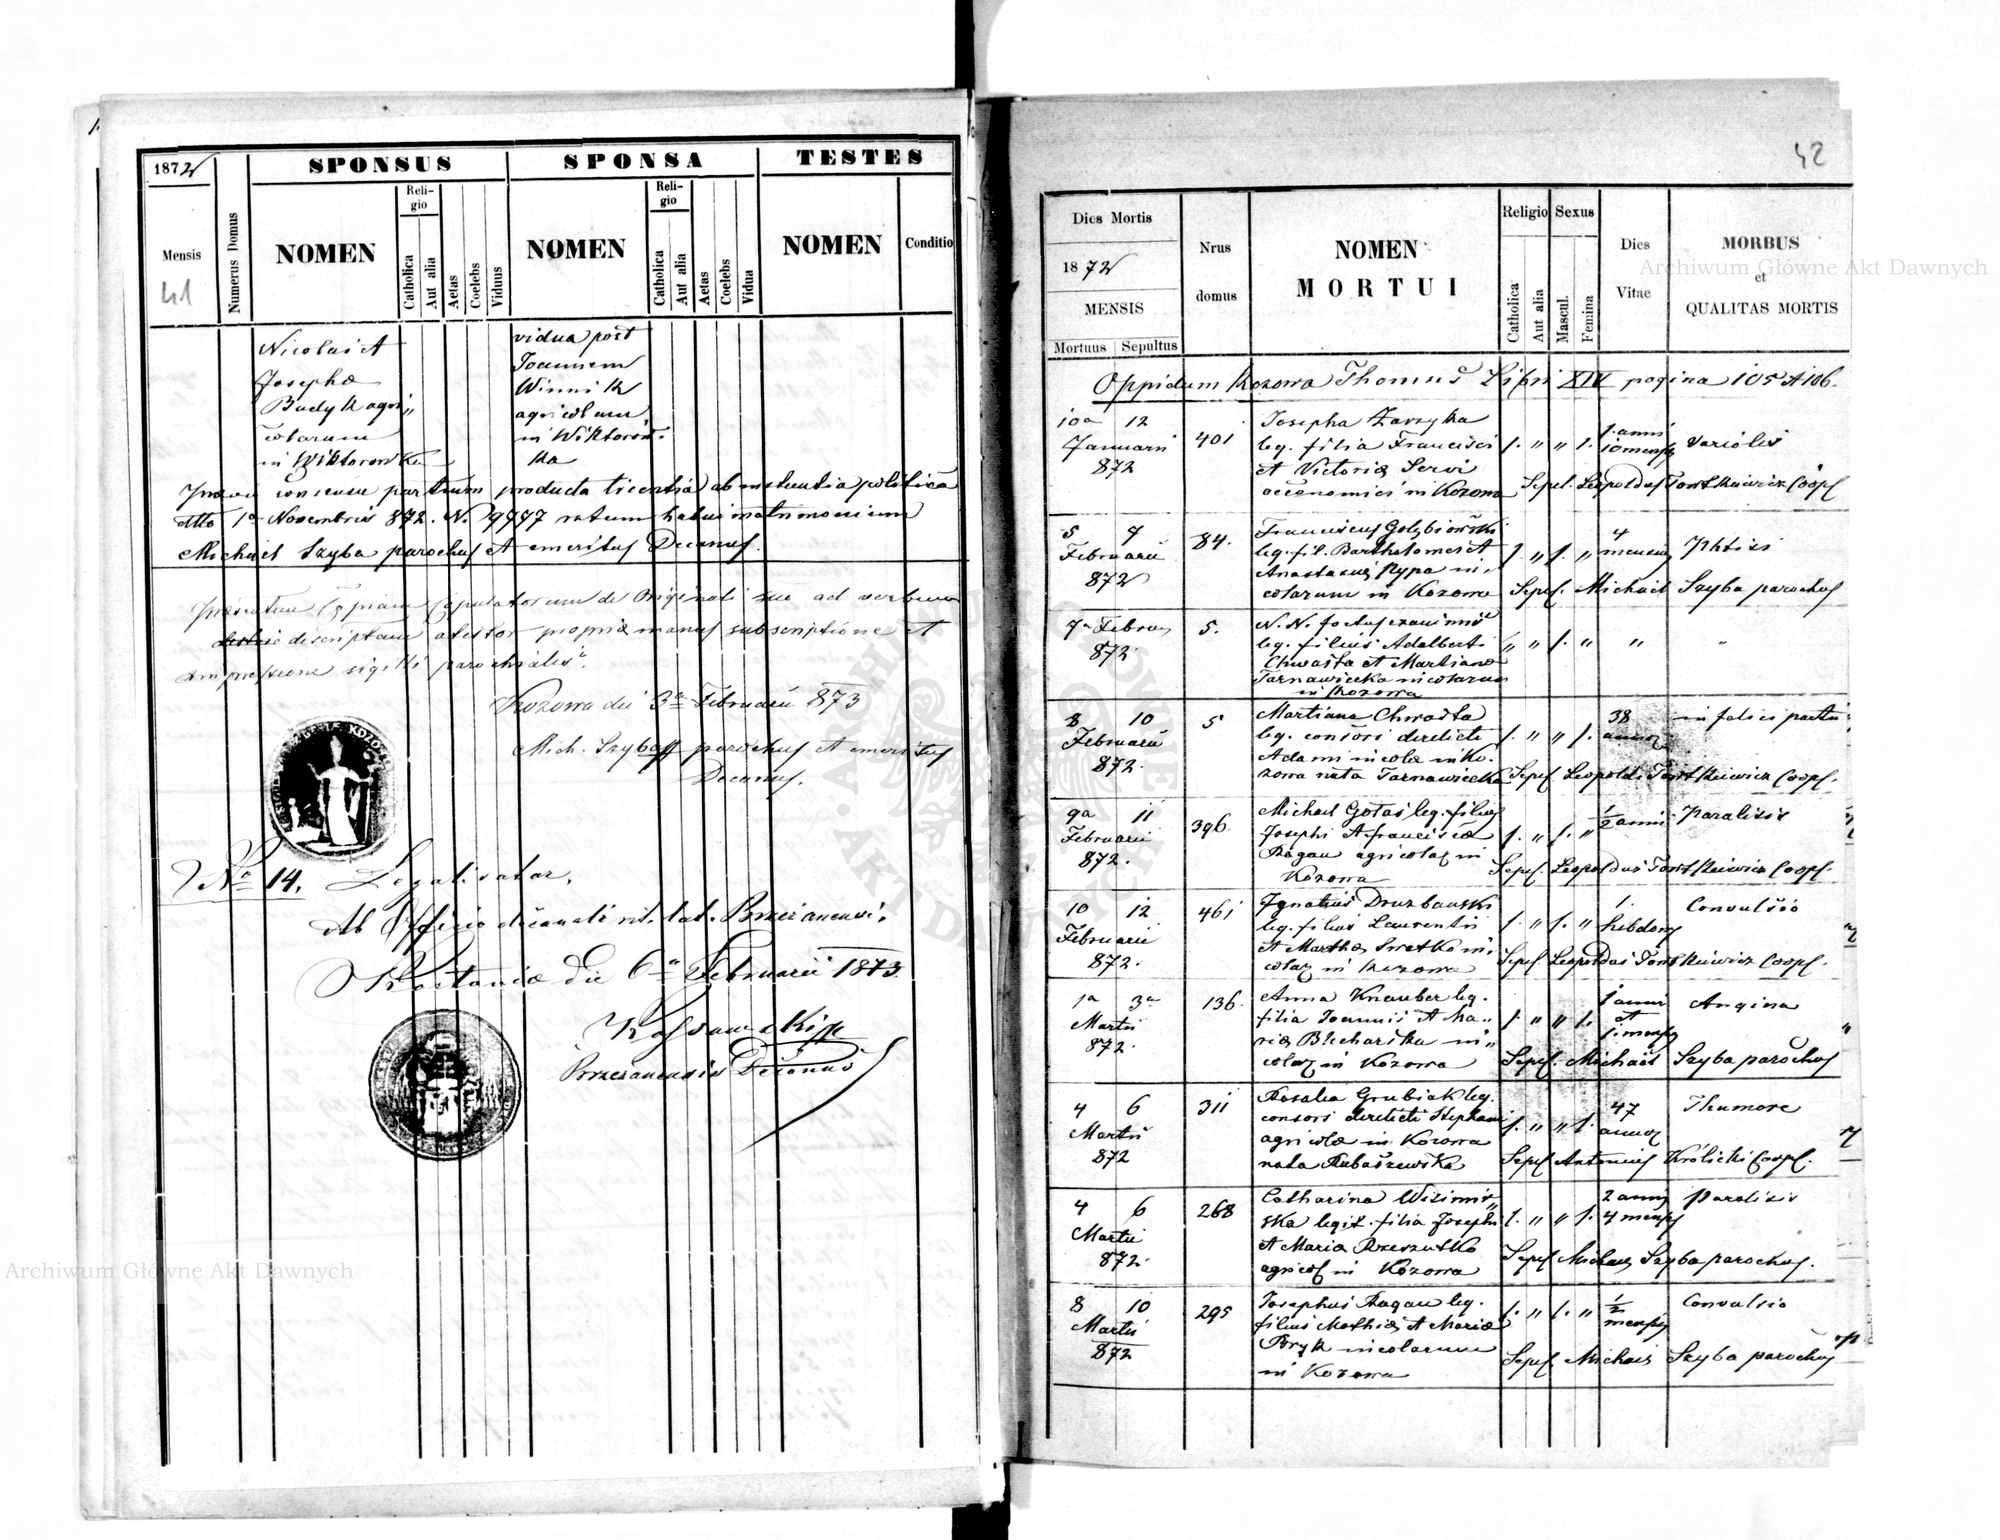 1872
SPONSUS
SPONSA
TESTES
Mensis
41
Numerus Domus
NOMEN
Religio
Catholica
Aut alia
Aetas
Coelebs
Viduus
NOMEN
Religio
Catholica
Aut alia
Aetas
Coelebs
Vidua
NOMEN
Conditio
Nicolai et
Josepha
Budyk agri„
colarum
in Wiktorowka
vidua post
Joannem
Winnik
agricolam
in Wiktorow
ka
consensu partium producta licentia ab instantia politica
dtto 1a Novembris 872. N. 9777 ratum habui matrimonium
Michael Szyba parochus et emeritus Decanus.
Copulatorum de Originali suo ad verbum
descriptam attestor propria manus subscriptione et
impressione sigilli parochialis.
Kozowa die 3a Februarii 873
Mich. Szyba parochus et emeritus
Decanus.
No 14. Legalisatur.
Ab Officio decanali rit. lat. Brzezanensi.
die 6a Februarii 1873.
Brzezanensis Decanus
42
Dies Mortis
1872
MENSIS
Mortuus Sepultus
Nrus domus
NOMEN
MORTUI
Religio
Catholica
Aut alia
Sexus
Mascul.
Femina
Dies Vitae
MORBUS
et
QUALITAS MORTIS
Oppidum Kozowa Thomus Libri XIV pagina 105 et 106.
10a 12
Januarii
872
401
Josepha Zarzyka
leg. filia Francisci
et Victoria Servi
oeconomici in Kozowa
1. „ „ 1.
1 anni
10 mensis
variolis
Sepel. Leopoldus Tont Kuiwicz Coop.
5 7
Februarii
872
84.
Franciscus Golębiowski
leg. fil. Bartholomei et
Anastasia Rypa in„
colarum in Kozowa
1. „ 1. „
4
mensis
Phtisi
Sepel. Michael Szyba parochus
7a Februarii
872.
5.
N. N. foetus
leg. filius Adalberti
Chwasta et Martiana
Tarnawiecka incolarum
in Kozowa
„ „ 1. „ „ „
8 10
Februarii
872.
5
Martiana Chwasta
leg. consors derelicti
Adami incola in Ko„
zowa nata Tarnawiecka
1. „ „ 1.
38
annor
in felici partu
Sepel. Leopold. Tont Kuiwicz Coop.
9a 11
Februarii
872.
396.
Michael Gotas leg. filius
Josephi et Francisca
Ragan agricolar in
Kozowa
1. „ 1. „
1/2 anni
Paralisis
Sepel. Leopoldus Tont Kuiwicz Coop.
10 12
Februarii
872.
461
Ignatius Druzbawski
leg. filius Laurentii
et Martha Swatko in„
colar in Kozowa
1. „ 1. „
1.
hebdom
Convulsio
Sepel. Leopoldus Tont Kuiwicz Coop.
1a 3a
Martii
872.
136.
Anna Knauber leg.
filia Joannis et Ma„
ria Blecharska in„
colar in Kozowa
1. „ „ 1.
1 anni
et
1. mensis
Angina
Sepel. Michael Szyba parochus
4 6
Martii
872
311
Rosalia Grubiak leg.
consors derelicti Stephani
agricola in Kozowa
nata Rubaszewska
1. „ „ 1.
47
annor
Thumore
Sepel. Antonius Królicki Coop.
4 6
Martii
872.
268
Catharina Wisimir„
ska legit. filia Josephi
et Maria Rzeszutko
agricol in Kozowa
1. „ „ 1.
2 anni
4 mensis
Paralisis
Sepel. Michael Szyba parochus.
8 10
Martii
872
295
Josephus Ragan leg.
filius Mathia et Maria
Bryk incolarum
in Kozowa
1. „ 1. „
1/2
mensis
Convulsio
Sepel. Michael Szyba parochus
Archiwum Główne Akt Dawnych
Archiwum Główne Akt Dawnych
ARCHIWUM GŁÓWNE AKT DAWNYCH